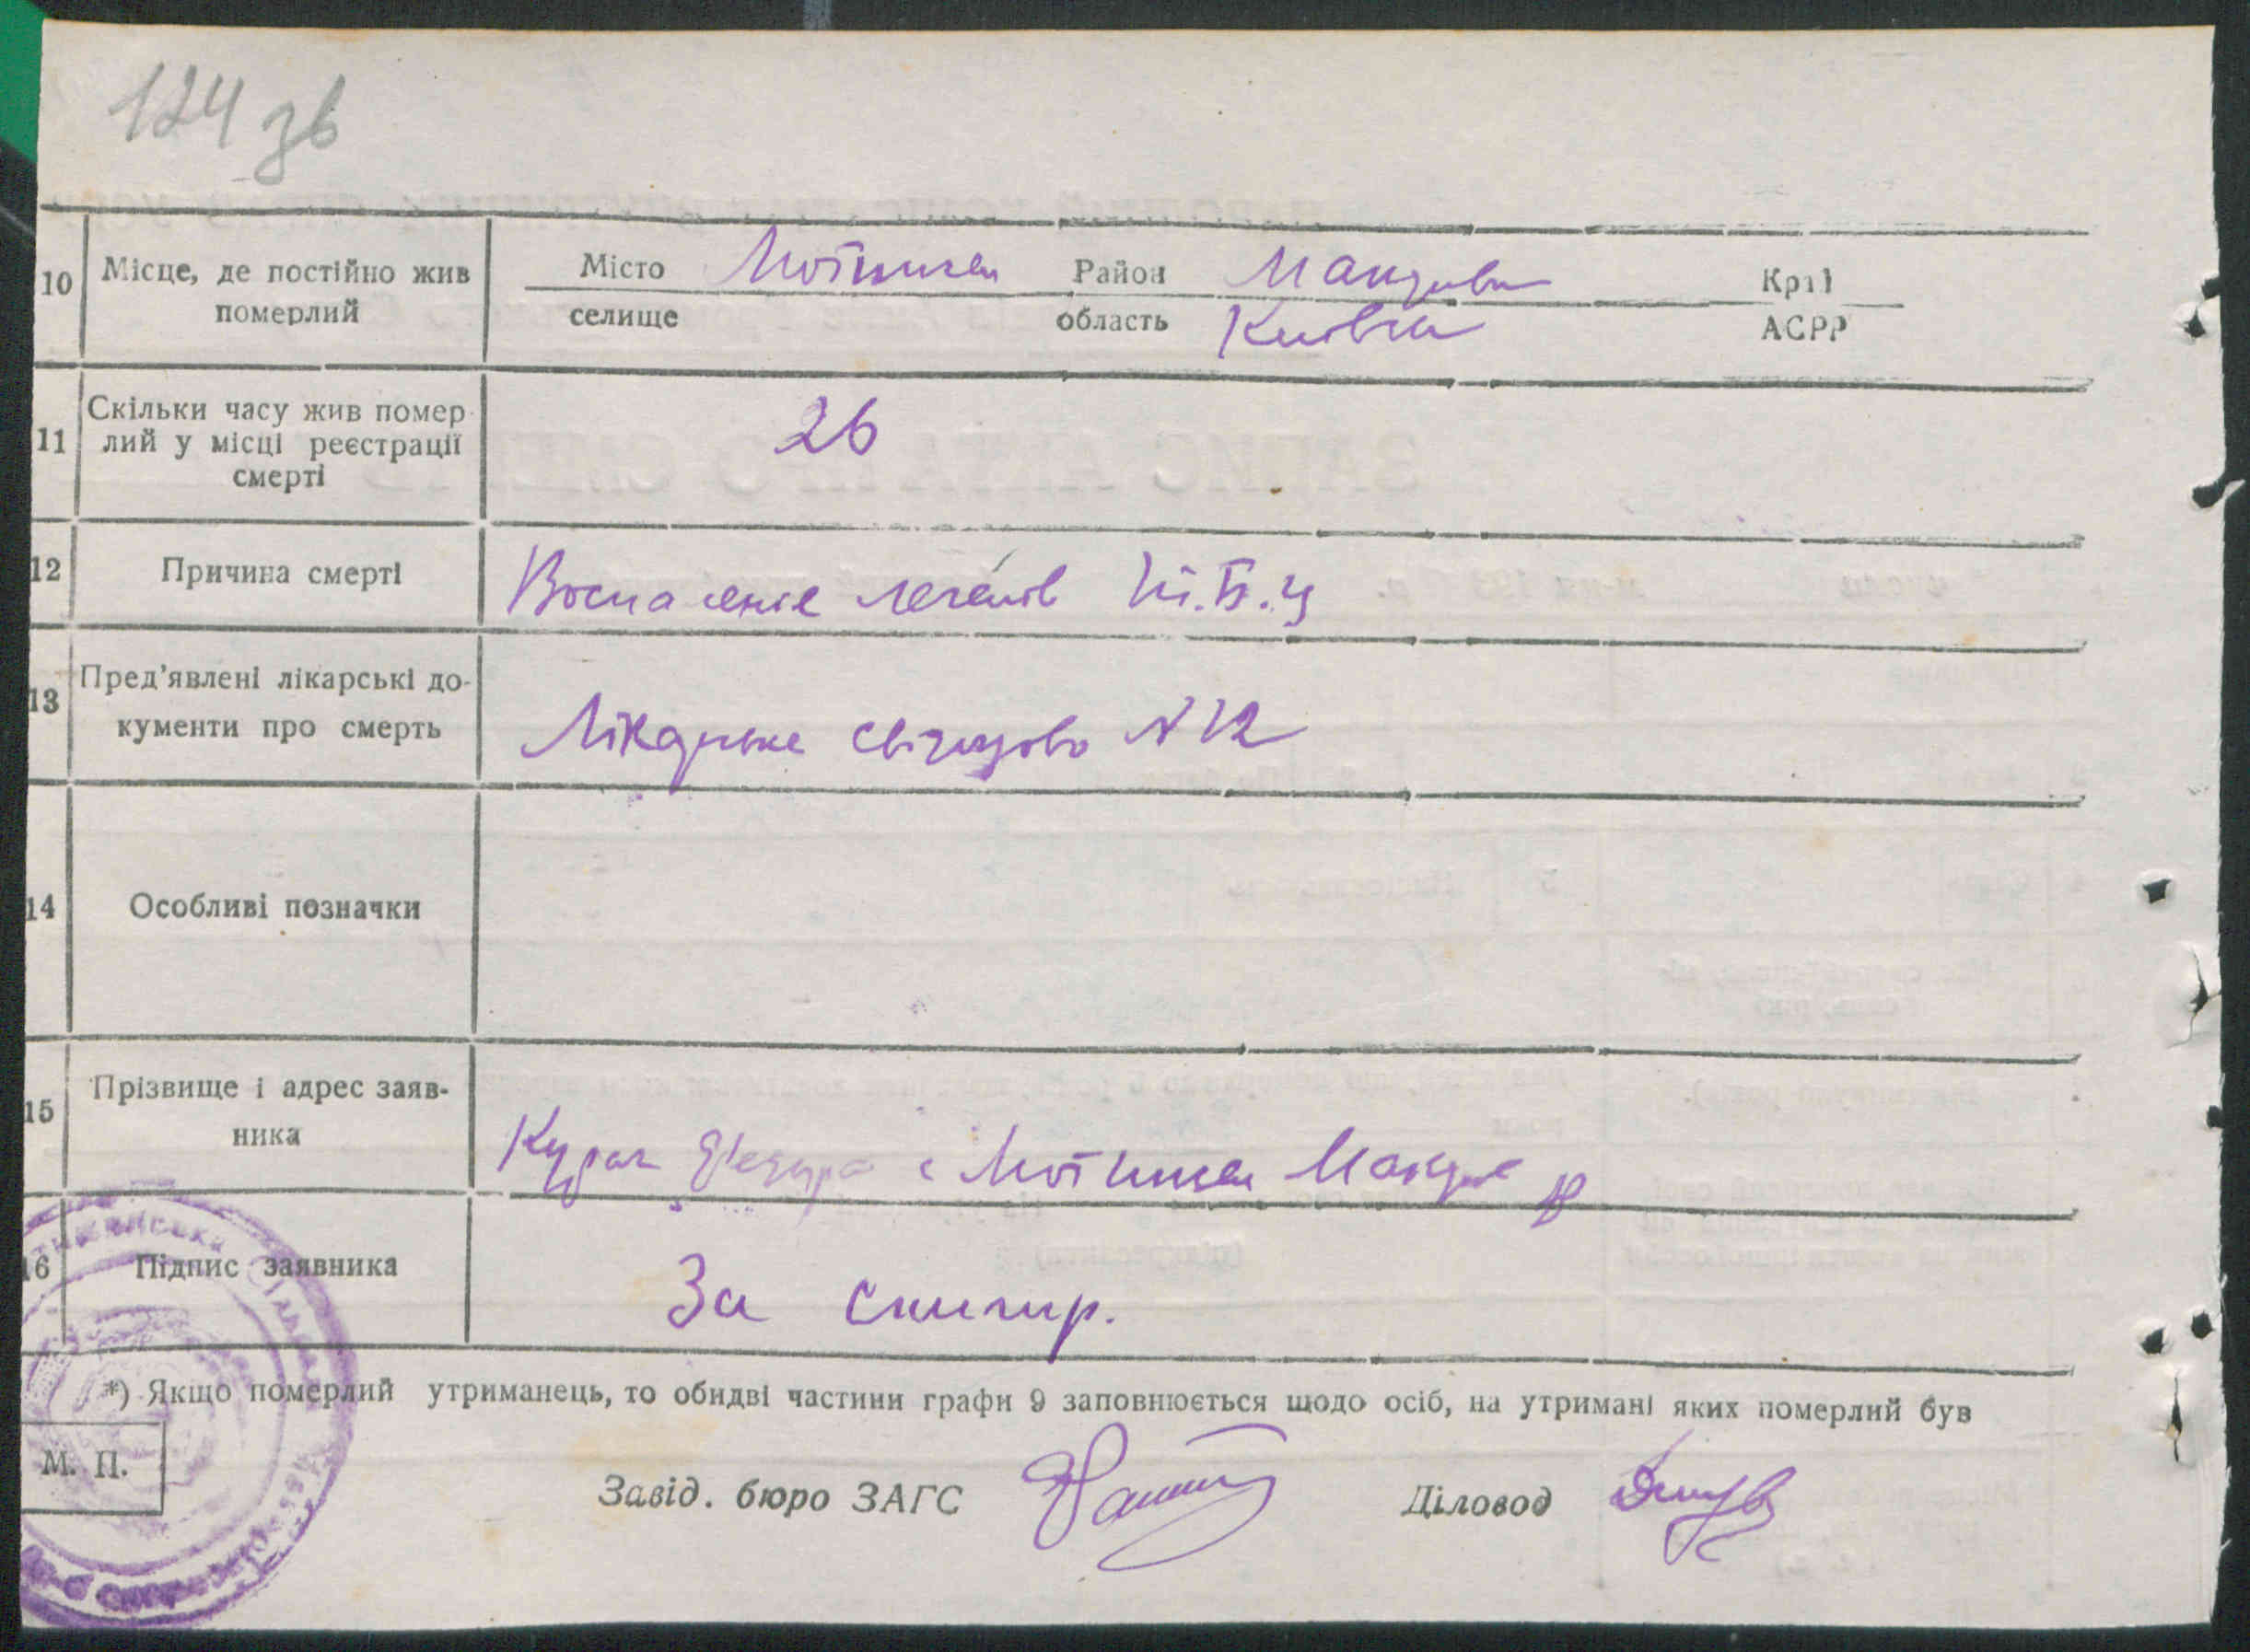 124 зв
10 Місце, де постійно жив померлий
Місто Мотижин Район Макарів Край
селище область Київська АСРР
11 Скільки часу жив помер-
лий у місці реєстрації
смерті
26
12 Причина смерті
Воспаление легенів
13 Пред'явлені лікарські до-
кументи про смерть
Лікарське свідоцтво N 12
14 Особливі позначки
15 Прізвище і адрес заяв-
ника
с Мотижин Макар
16 Підпис заявника
За
*) Якщо померлий утриманець, то обидві частини графи 9 заповнюється щодо осіб, на утримані яких померлий був
М. П.
Завід. бюро ЗАГС Діловод